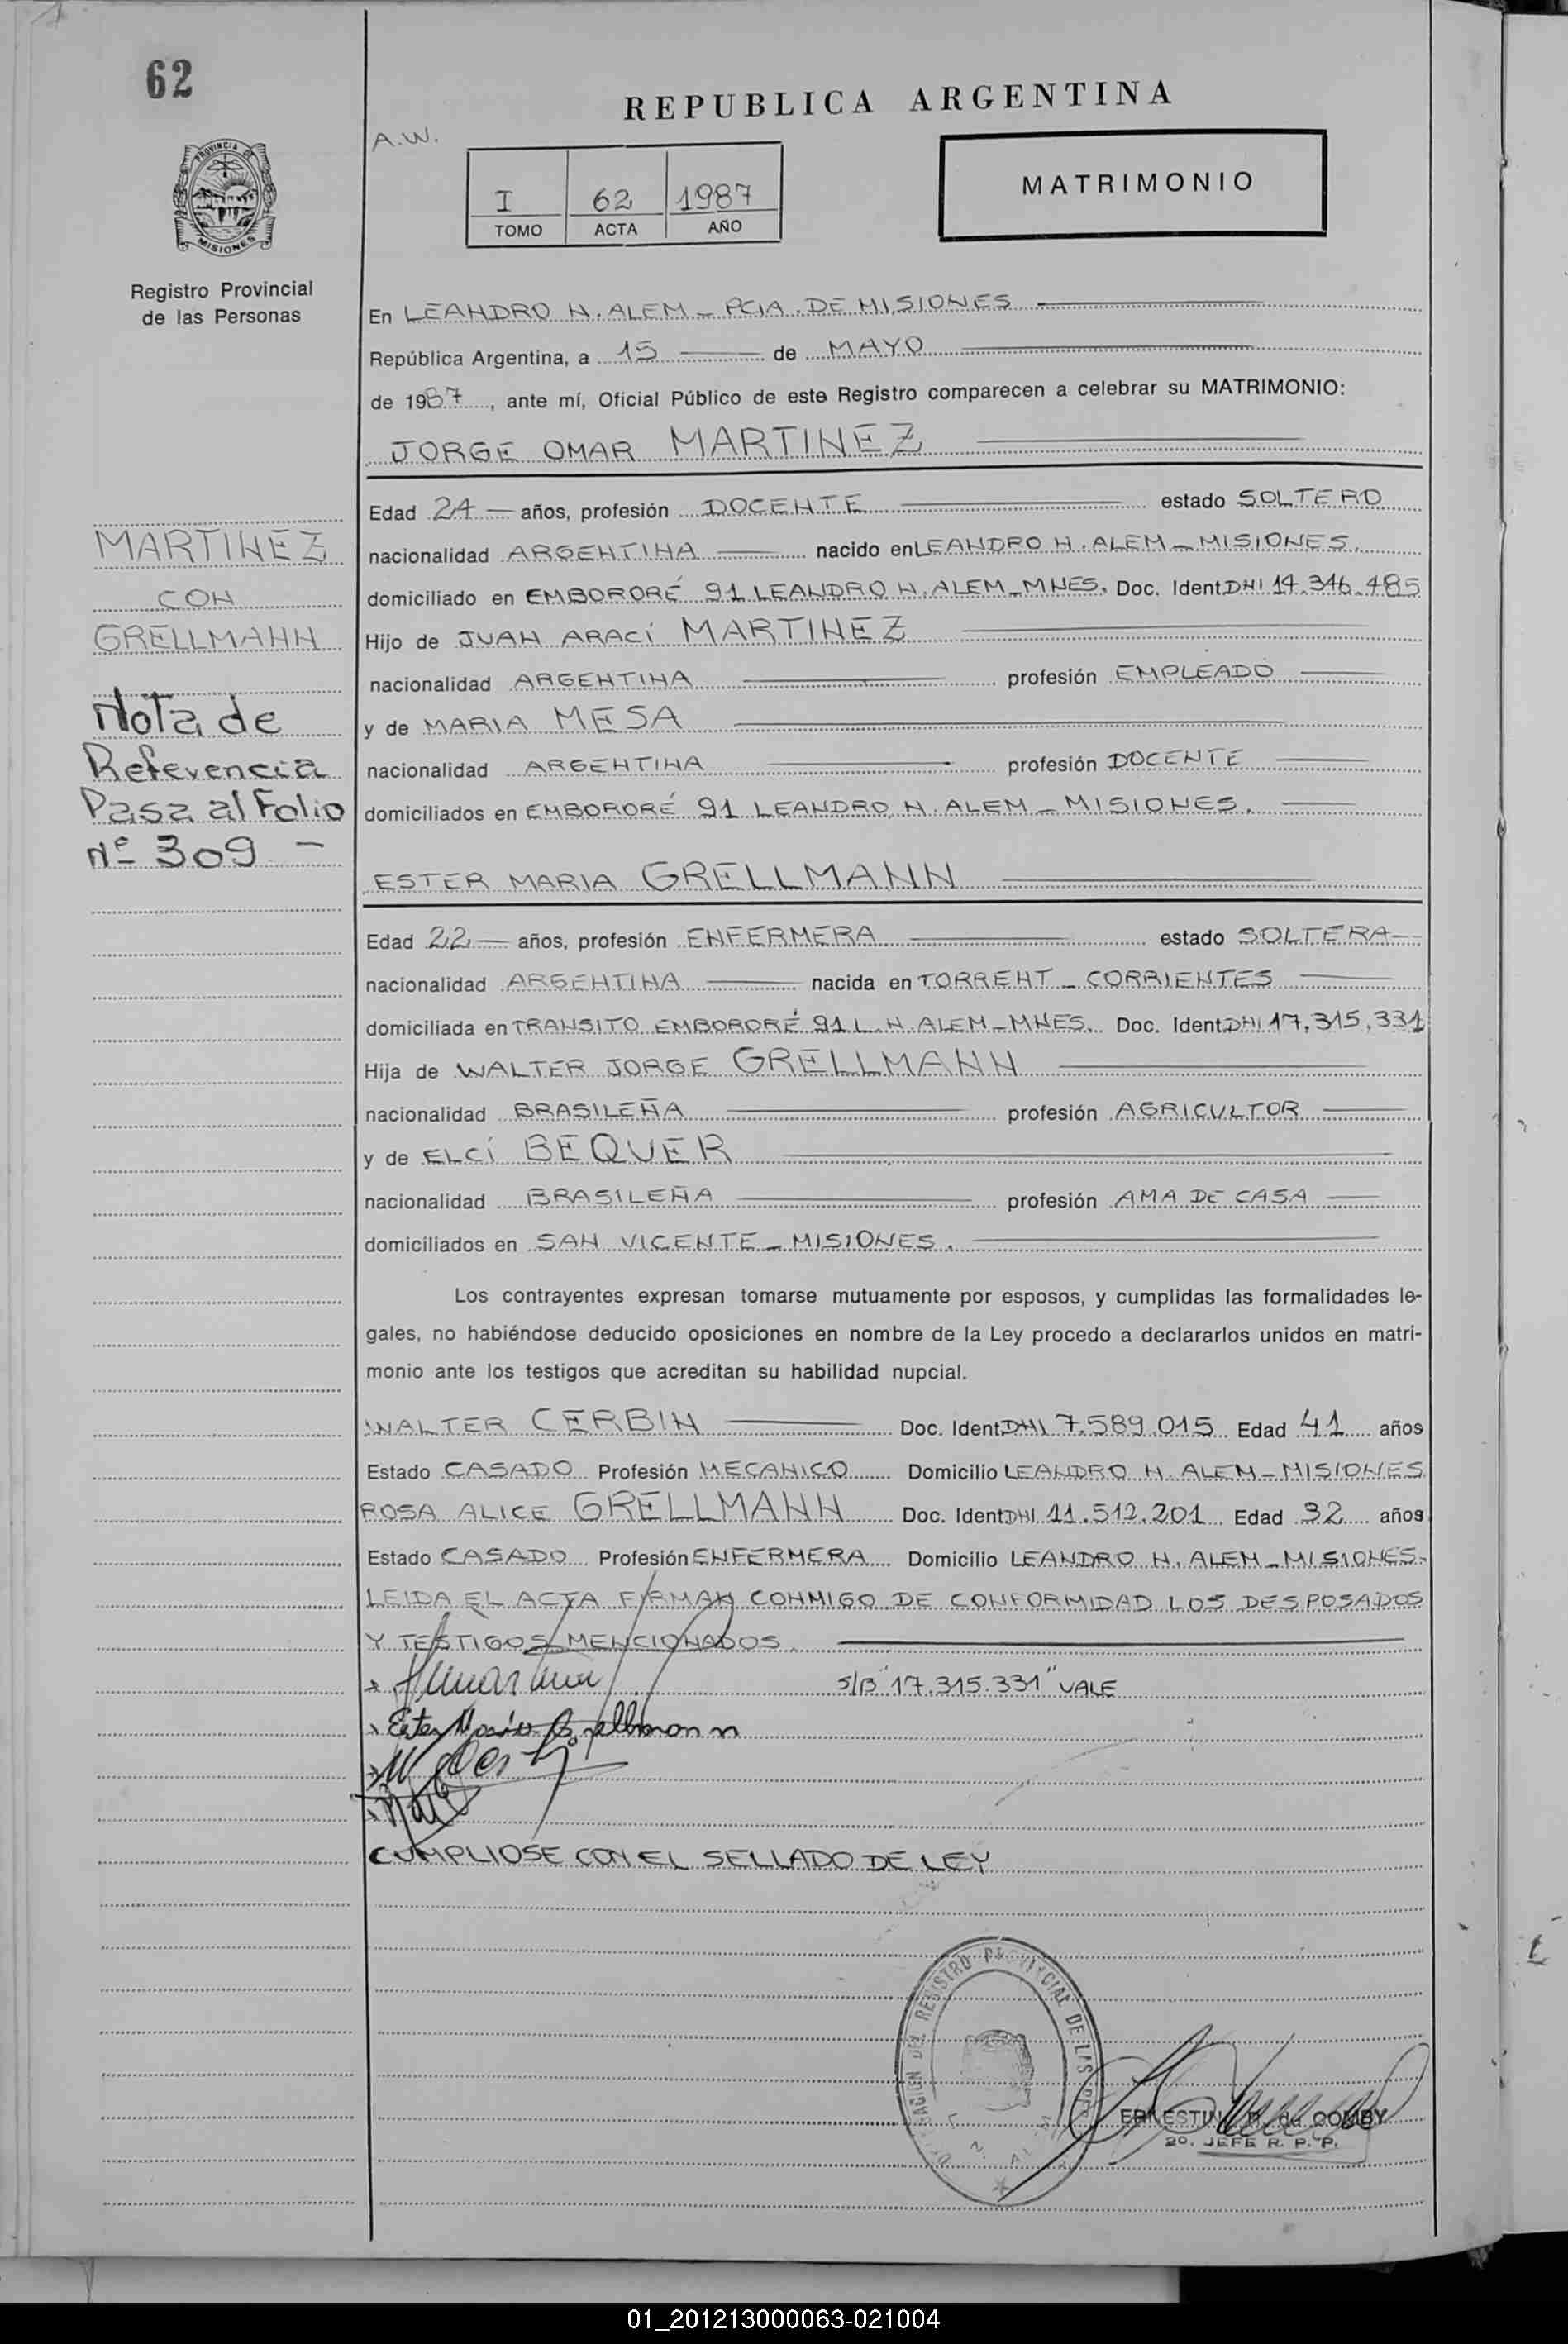 62
REPUBLICA ARGENTINA
A.W.
PROVINCIA DE
MISIONES
I 62 1987
TOMO ACTA AÑO
MATRIMONIO
Registro Provincial
de las Personas
En LEANDRO N. ALEM - PCIA. DE MISIONES
República Argentina, a 15 de MAYO
de 1987, ante mí, Oficial Público de este Registro comparecen a celebrar su MATRIMONIO:
JORGE OMAR MARTINEZ
Edad 24 años, profesión DOCENTE estado SOLTERO
MARTINEZ
nacionalidad ARGENTINA nacido en LEANDRO N. ALEM - MISIONES.
CON
domiciliado en EMBORORÉ 91 LEANDRO N. ALEM - MNES. Doc. Ident. DNI 14.346.485
GRELLMANN
Hijo de JUAN ARACÍ MARTINEZ
nacionalidad ARGENTINA profesión EMPLEADO
Nota de
y de MARIA MESA
Referencia
nacionalidad ARGENTINA profesión DOCENTE
Pasa al Folio
domiciliados en EMBORORÉ 91 LEANDRO N. ALEM - MISIONES.
Nº 309 -
ESTER MARIA GRELLMANN
Edad 22 años, profesión ENFERMERA estado SOLTERA
nacionalidad ARGENTINA nacida en TORRENT - CORRIENTES
domiciliada en TRANSITO EMBORORÉ 91 L. N. ALEM - MNES. Doc. Ident. DNI 17.315.331
Hija de WALTER JORGE GRELLMANN
nacionalidad BRASILEÑA profesión AGRICULTOR
y de ELCÍ BEQUER
nacionalidad BRASILEÑA profesión AMA DE CASA
domiciliados en SAN VICENTE - MISIONES.
Los contrayentes expresan tomarse mutuamente por esposos, y cumplidas las formalidades le-
gales, no habiéndose deducido oposiciones en nombre de la Ley procedo a declararlos unidos en matri-
monio ante los testigos que acreditan su habilidad nupcial.
WALTER CERBIN Doc. Ident. DNI 7.589.015 Edad 41 años
Estado CASADO Profesión MECANICO Domicilio LEANDRO N. ALEM - MISIONES
ROSA ALICE GRELLMANN Doc. Ident. DNI 11.512.201 Edad 32 años
Estado CASADO Profesión ENFERMERA Domicilio LEANDRO N. ALEM - MISIONES.
LEIDA EL ACTA FIRMAN CONMIGO DE CONFORMIDAD LOS DESPOSADOS
Y TESTIGOS MENCIONADOS.
S/B "17.315.331" VALE
Ester María Grellmann
CUMPLIOSE CON EL SELLADO DE LEY
DEL REGISTRO PROVINCIAL DE LAS
de COMBY
2o. JEFE R. P. P.
01_201213000063-021004